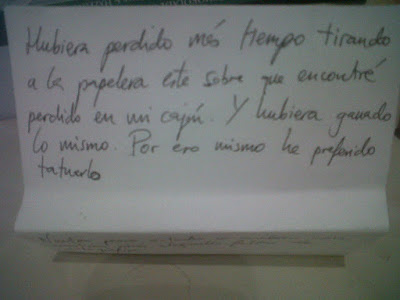 Hubiera perdido más tiempo tirando
a la papelera este sobre que encontré
perdido en mi cajón. Y hubiera ganado
lo mismo. Por eso mismo he preferido
tatuarlo